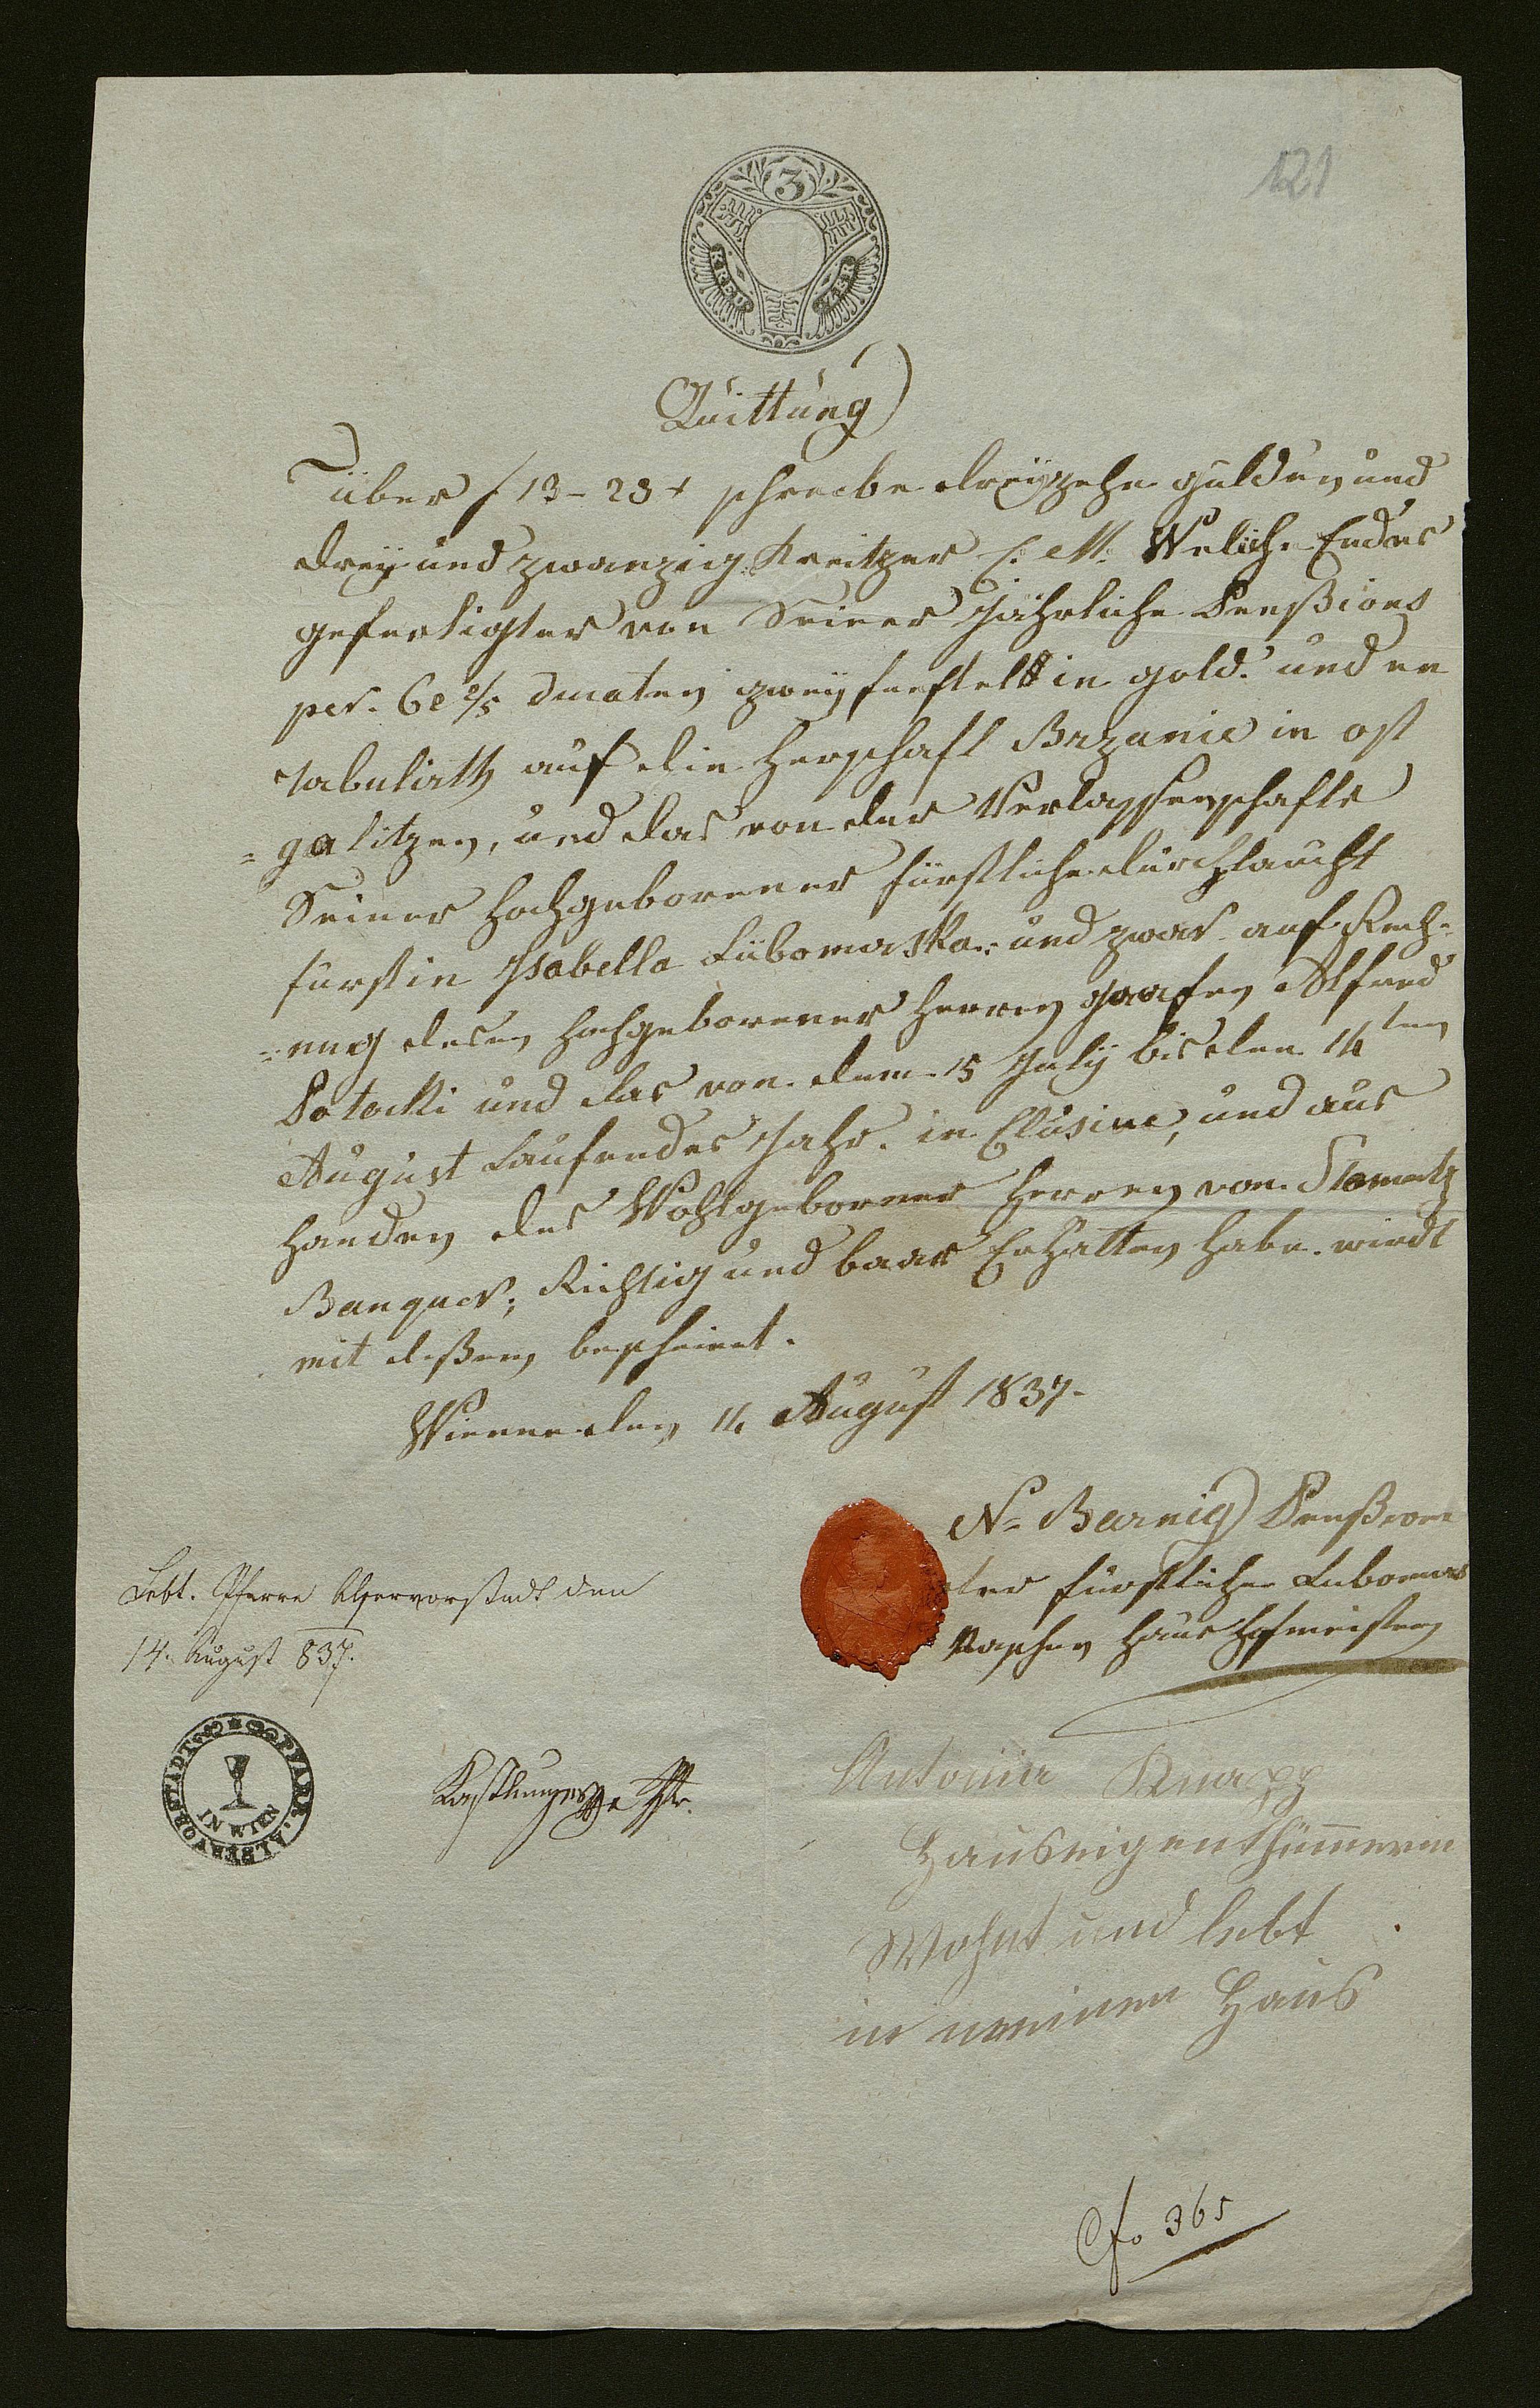 121
3
KREU ZER
Quittung
über f 13 - 23 x schreibe dreyzehn gulden und
drey und zwanzig Kreitzer C: M: Weliche Endes
gefertigter von Seiner Jährliche Penßions
per. 6e 2/5 ducaten zwey funftel in gold. und en
Tabulirth auf die Herschaft Brzanie in ost
=galitzen, und das von der Verlassenschafte
Seiner Hochgeborener fürstliche durchlaucht
fürstin Isabella Lübomarska: und zwar auf Rech=
=nung desen Hochgeborener Herren Graafen Alfred
Potocki und das von dem 15 July bis den 14ten
August Laufendes Jahr. in Clusive, und aus
Handen des Wohlgeborner Herren von Stametz
Banquer; Richtig und baar Erhalten habe. wirdt
mit dißem bescheint.
Wienn den 14. August 1837.
N= Barnig Penßion
ter fürstlicher Lubomar
Raschen Haus Hofmeister
Lebt. Pfarre Alservorstadt den
14. August 837.
PFARR. ALSERVORSTADT
IN WIEN
Antonia Knapp
Hauseigenthümmerin
Wohnt und lebt
in meinem Haus
fo 365